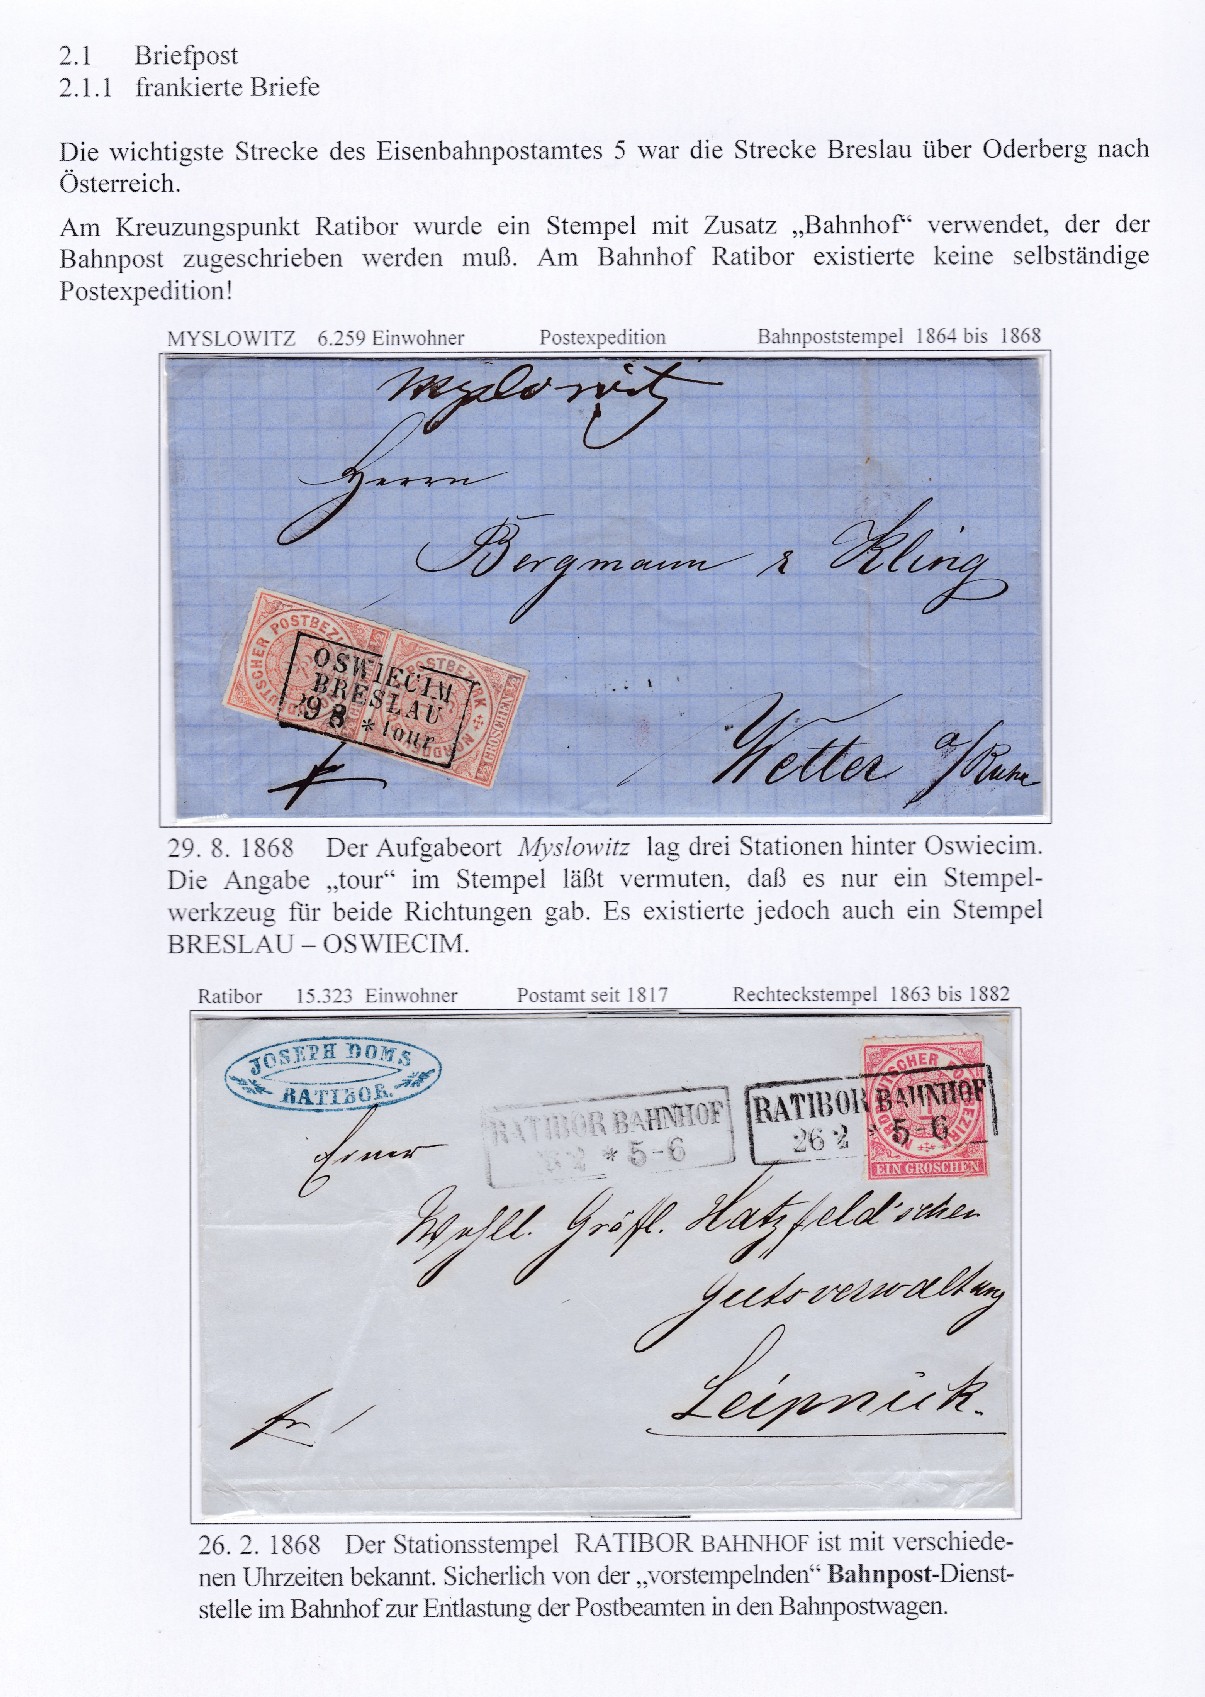 2.1 Briefpost
2.1.1 frankierte Briefe
Die wichtigste Strecke des Eisenbahnpostamtes 5 war die Strecke Breslau über Oderberg nach
Österreich.
Am Kreuzungspunkt Ratibor wurde ein Stempel mit Zusatz „Bahnhof“ verwendet, der der
Bahnpost zugeschrieben werden muß. Am Bahnhof Ratibor existierte keine selbständige
Postexpedition!
MYSLOWITZ 6.259 Einwohner Postexpedition Bahnpoststempel 1864 bis 1868
Myslowitz
Herrn
Bergmann & Kling
OSWIECIM
BRESLAU
29 8 * tour
Wetter a/Ruhr
29. 8. 1868 Der Aufgabeort Myslowitz lag drei Stationen hinter Oswiecim.
Die Angabe „tour“ im Stempel läßt vermuten, daß es nur ein Stempel-
werkzeug für beide Richtungen gab. Es existierte jedoch auch ein Stempel
BRESLAU – OSWIECIM.
Ratibor 15.323 Einwohner Postamt seit 1817 Rechteckstempel 1863 bis 1882
JOSEPH DOMS
RATIBOR.
RATIBOR BAHNHOF
26 2 * 5-6
RATIBOR BAHNHOF
26 2 * 5-6
EIN GROSCHEN
Einer
Wohll. Gräfl. Hatzfeld'schen
Gutsverwaltung
Leipnick.
fr.
26. 2. 1868 Der Stationsstempel RATIBOR BAHNHOF ist mit verschiede-
nen Uhrzeiten bekannt. Sicherlich von der „vorstempelnden“ Bahnpost-Dienst-
stelle im Bahnhof zur Entlastung der Postbeamten in den Bahnpostwagen.